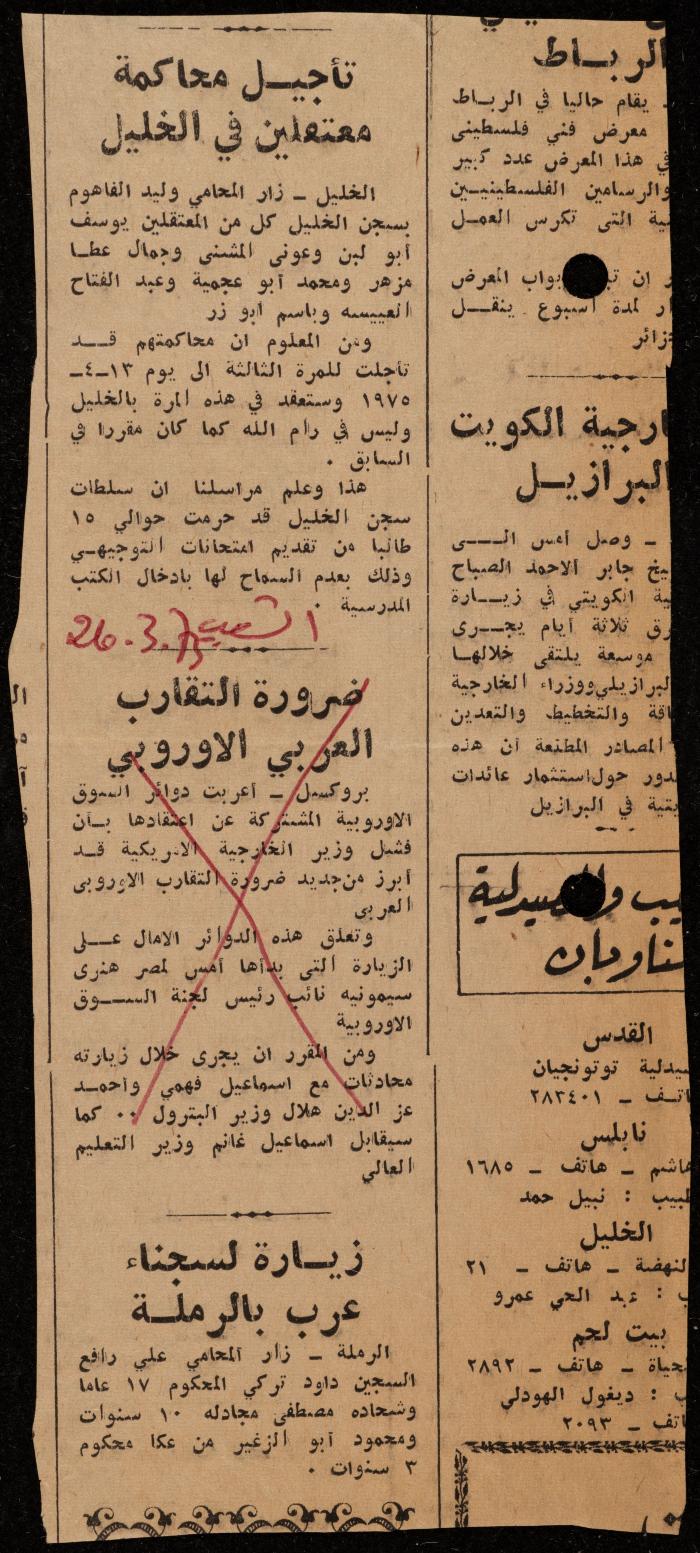 تأجيل محاكمة
معتقلين في الخليل
الخليل ـ زار المحامي وليد الفاهوم
بسجن الخليل كل من المعتقلين يوسف
أبو لبن وعوني المشني وجمال عطا
مزهر ومحمد أبو عجمية وعبد الفتاح
العييسه وباسم ابو زر
ومن المعلوم ان محاكمتهم قد
تأجلت للمرة الثالثة الى يوم ١٣ـ٤ـ
١٩٧٥ وستعقد في هذه المرة بالخليل
وليس في رام الله كما كان مقررا في
السابق ٠
هذا وعلم مراسلنا ان سلطات
سجن الخليل قد حرمت حوالي ١٥
طالبا من تقديم امتحانات التوجيهي
وذلك بعدم السماح لها بادخال الكتب
المدرسية ٠
الشعب 26.3.75
ضرورة التقارب
العربي الاوروبي
بروكسل ـ أعربت دوائر السوق
الاوروبية المشتركة عن اعتقادها بأن
فشل وزير الخارجية الامريكية قد
أبرز من جديد ضرورة التقارب الاوروبى
العربى
وتعلق هذه الدوائر الامال على
الزيارة التى بدأها أمس لمصر هنرى
سيمونيه نائب رئيس لجنة السوق
الاوروبية
ومن المقرر ان يجرى خلال زيارته
محادثات مع اسماعيل فهمي واحمد
عز الدين هلال وزير البترول ٠٠ كما
سيقابل اسماعيل غانم وزير التعليم
العالي
زيارة لسجناء
عرب بالرملة
الرملة ـ زار المحامي علي رافع
السجين داود تركي المحكوم ١٧ عاما
وشحاده مصطفى مجادله ١٠ سنوات
ومحمود أبو الزغير من عكا محكوم
٣ سنوات ٠
الرباط
يقام حاليا في الرباط
معرض فني فلسطينى
في هذا المعرض عدد كبير
والرسامين الفلسطينيين
التى تكرس العمل
ان بواب المعرض
لمدة أسبوع ينقل
الكويت
البرازيل
ـ وصل أمس الى
جابر الاحمد الصباح
الكويتي في زيارة
ثلاثة أيام يجرى
موسعة يلتقى خلالها
البرازيلي ووزراء الخارجية
والتخطيط والتعدين
المصادر المطلعة ان هذه
حول استثمار عائدات
في البرازيل
القدس
توتونجيان
ـ ٢٨٣٤٠١
نابلس
هاشم ـ هاتف ـ ١٦٨٥
: نبيل حمد
الخليل
النهضة ـ هاتف ـ ٢١
: عبد الحي عمرو
بيت لحم
ـ هاتف ـ ٢٨٩٢
: ديغول الهودلي
ـ ٢٠٩٣